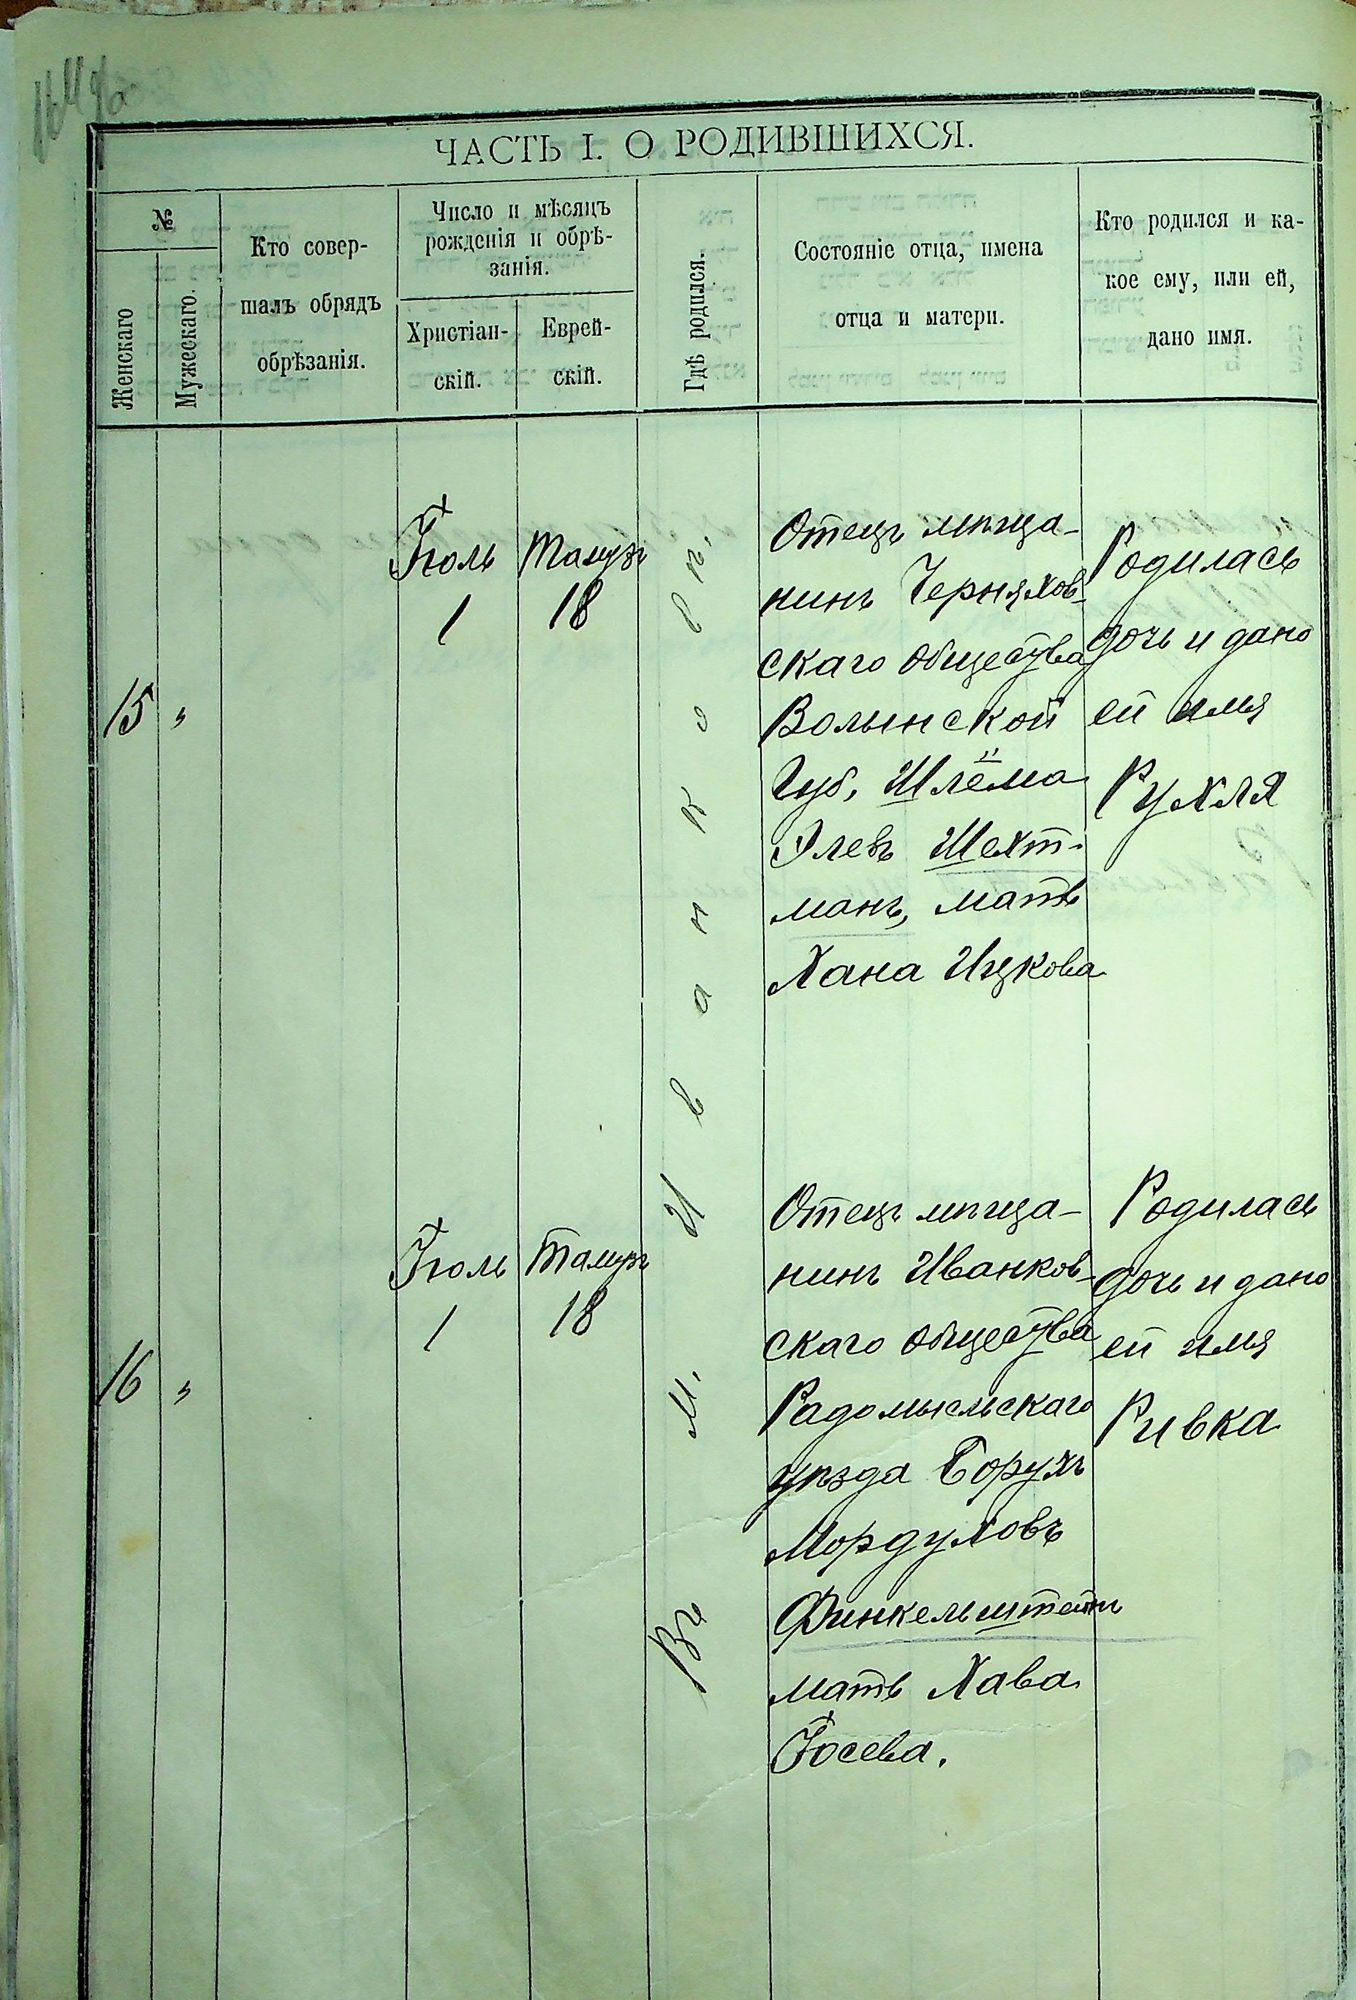 ЧАСТЬ I. О РОДИВШИХСЯ.
№
Женскаго
Мужескаго.
Кто совер-
шалъ обрядъ
обрѣзанія.
Число и мѣсяцъ
рожденія и обрѣ-
занія.
Христіан-
скій.
Еврей-
скій.
Гдѣ родился.
Состояніе отца, имена
отца и матери.
Кто родился и ка-
кое ему, или ей,
дано имя.
15
"
Іюль
1
Тамузъ
18
Въ м. Иванковѣ.
Отецъ мѣща-
нинъ Черняхов-
скаго общества
Волынской
Губ, Шлёма
Элевъ Шехт-
манъ, мать
Хана Ицкова
Родилась
дочь и дано
ей имя
Рухля
16
"
Іюль
1
Тамузъ
18
Отецъ мѣща-
нинъ Иванков-
скаго общества
Радомысльскаго
уѣзда Борухъ
Мордуховъ
Финкельштейнъ
мать Хава
Іосева.
Родилась
дочь и дано
ей имя
Ривка